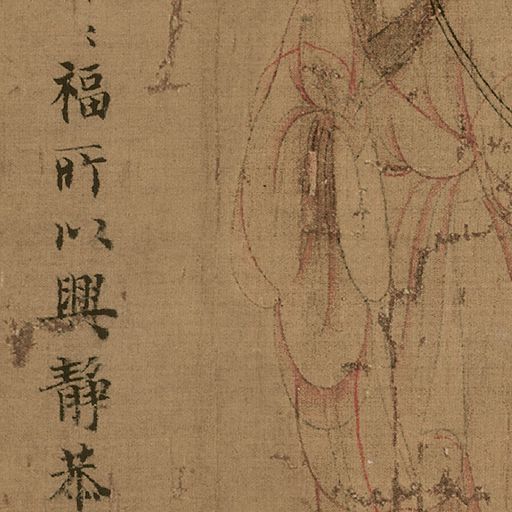 〻福所以興靜恭